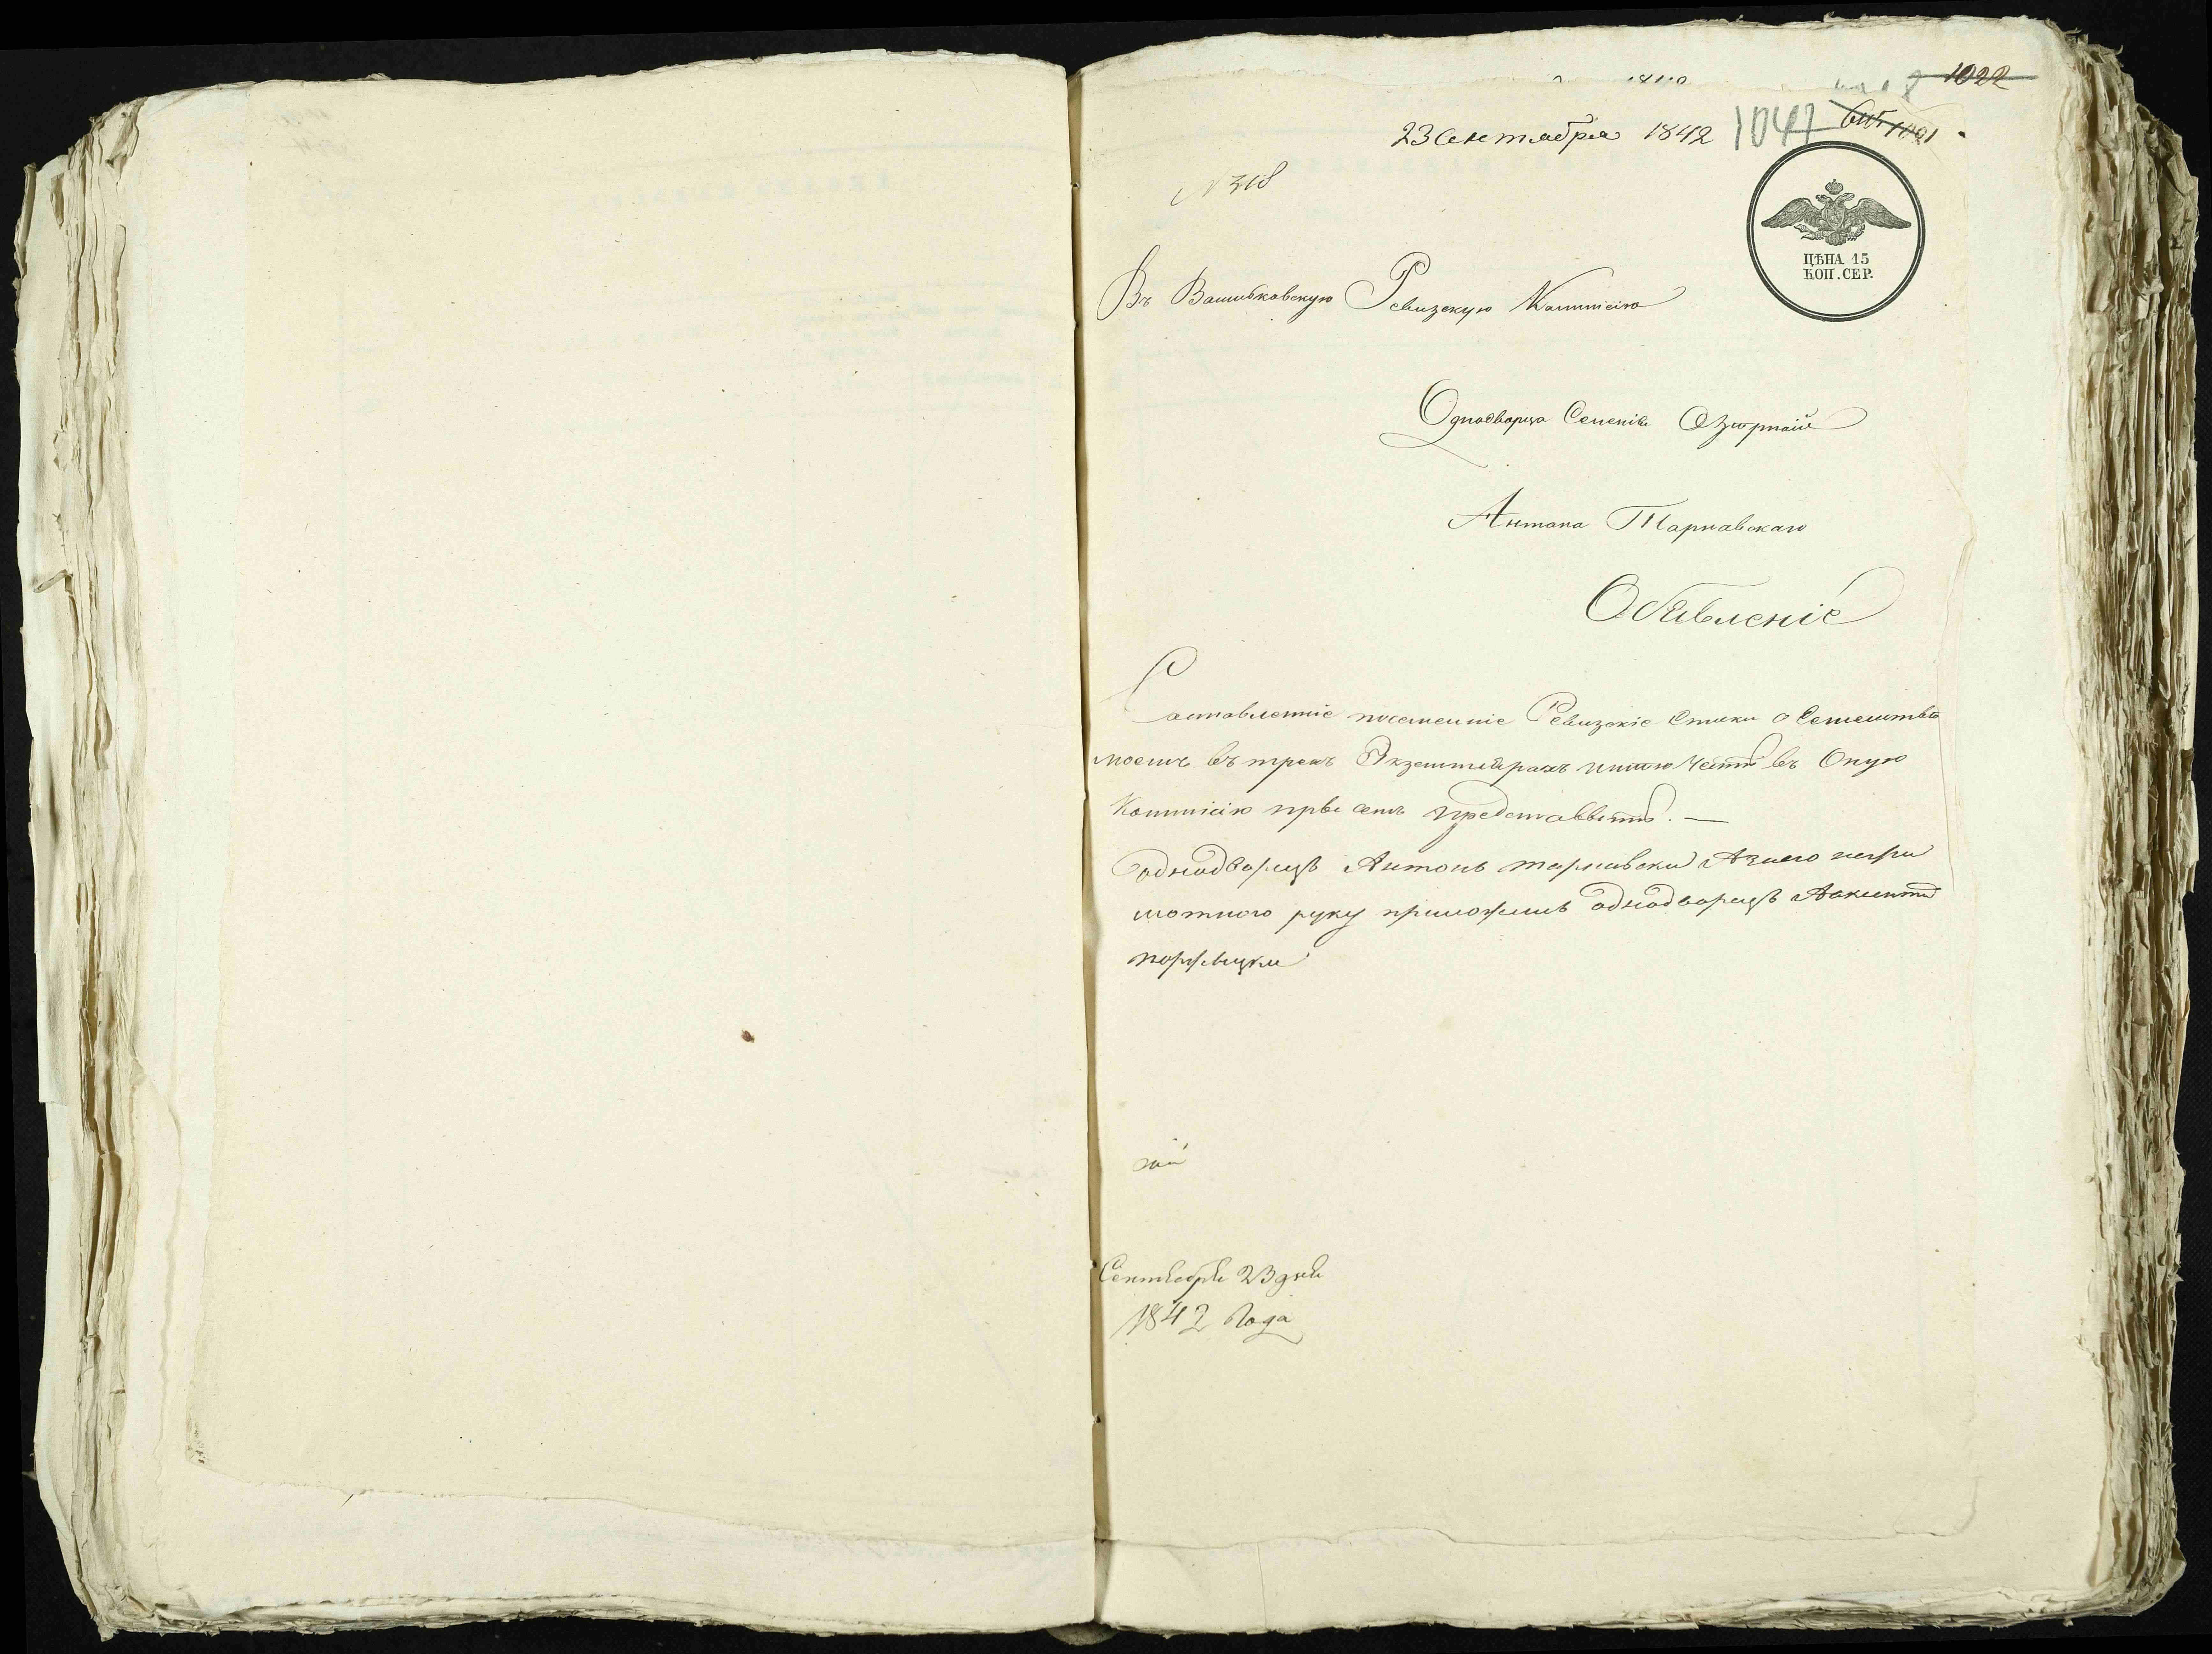 1022
23 Сентября 1842 1047
N 318
ЦѢНА 15
КОП. СЕР.
Въ Васильковскую Ревизскую Комисію
Однодворца Селенія Озирной
Антона Тарнавскаго
Обявленіе
Составленніе посеменніе Ревизскіе Стики о Семействѣ
моемъ въ трехъ Экземпляхрахъ имѣю честь въ Оную
Коммісію при семъ представить. —
однодворцъ Антонъ тарнавски Азнего негра
мотного руку приложилъ однодворецъ
Сентября 23 дня
1842 Года